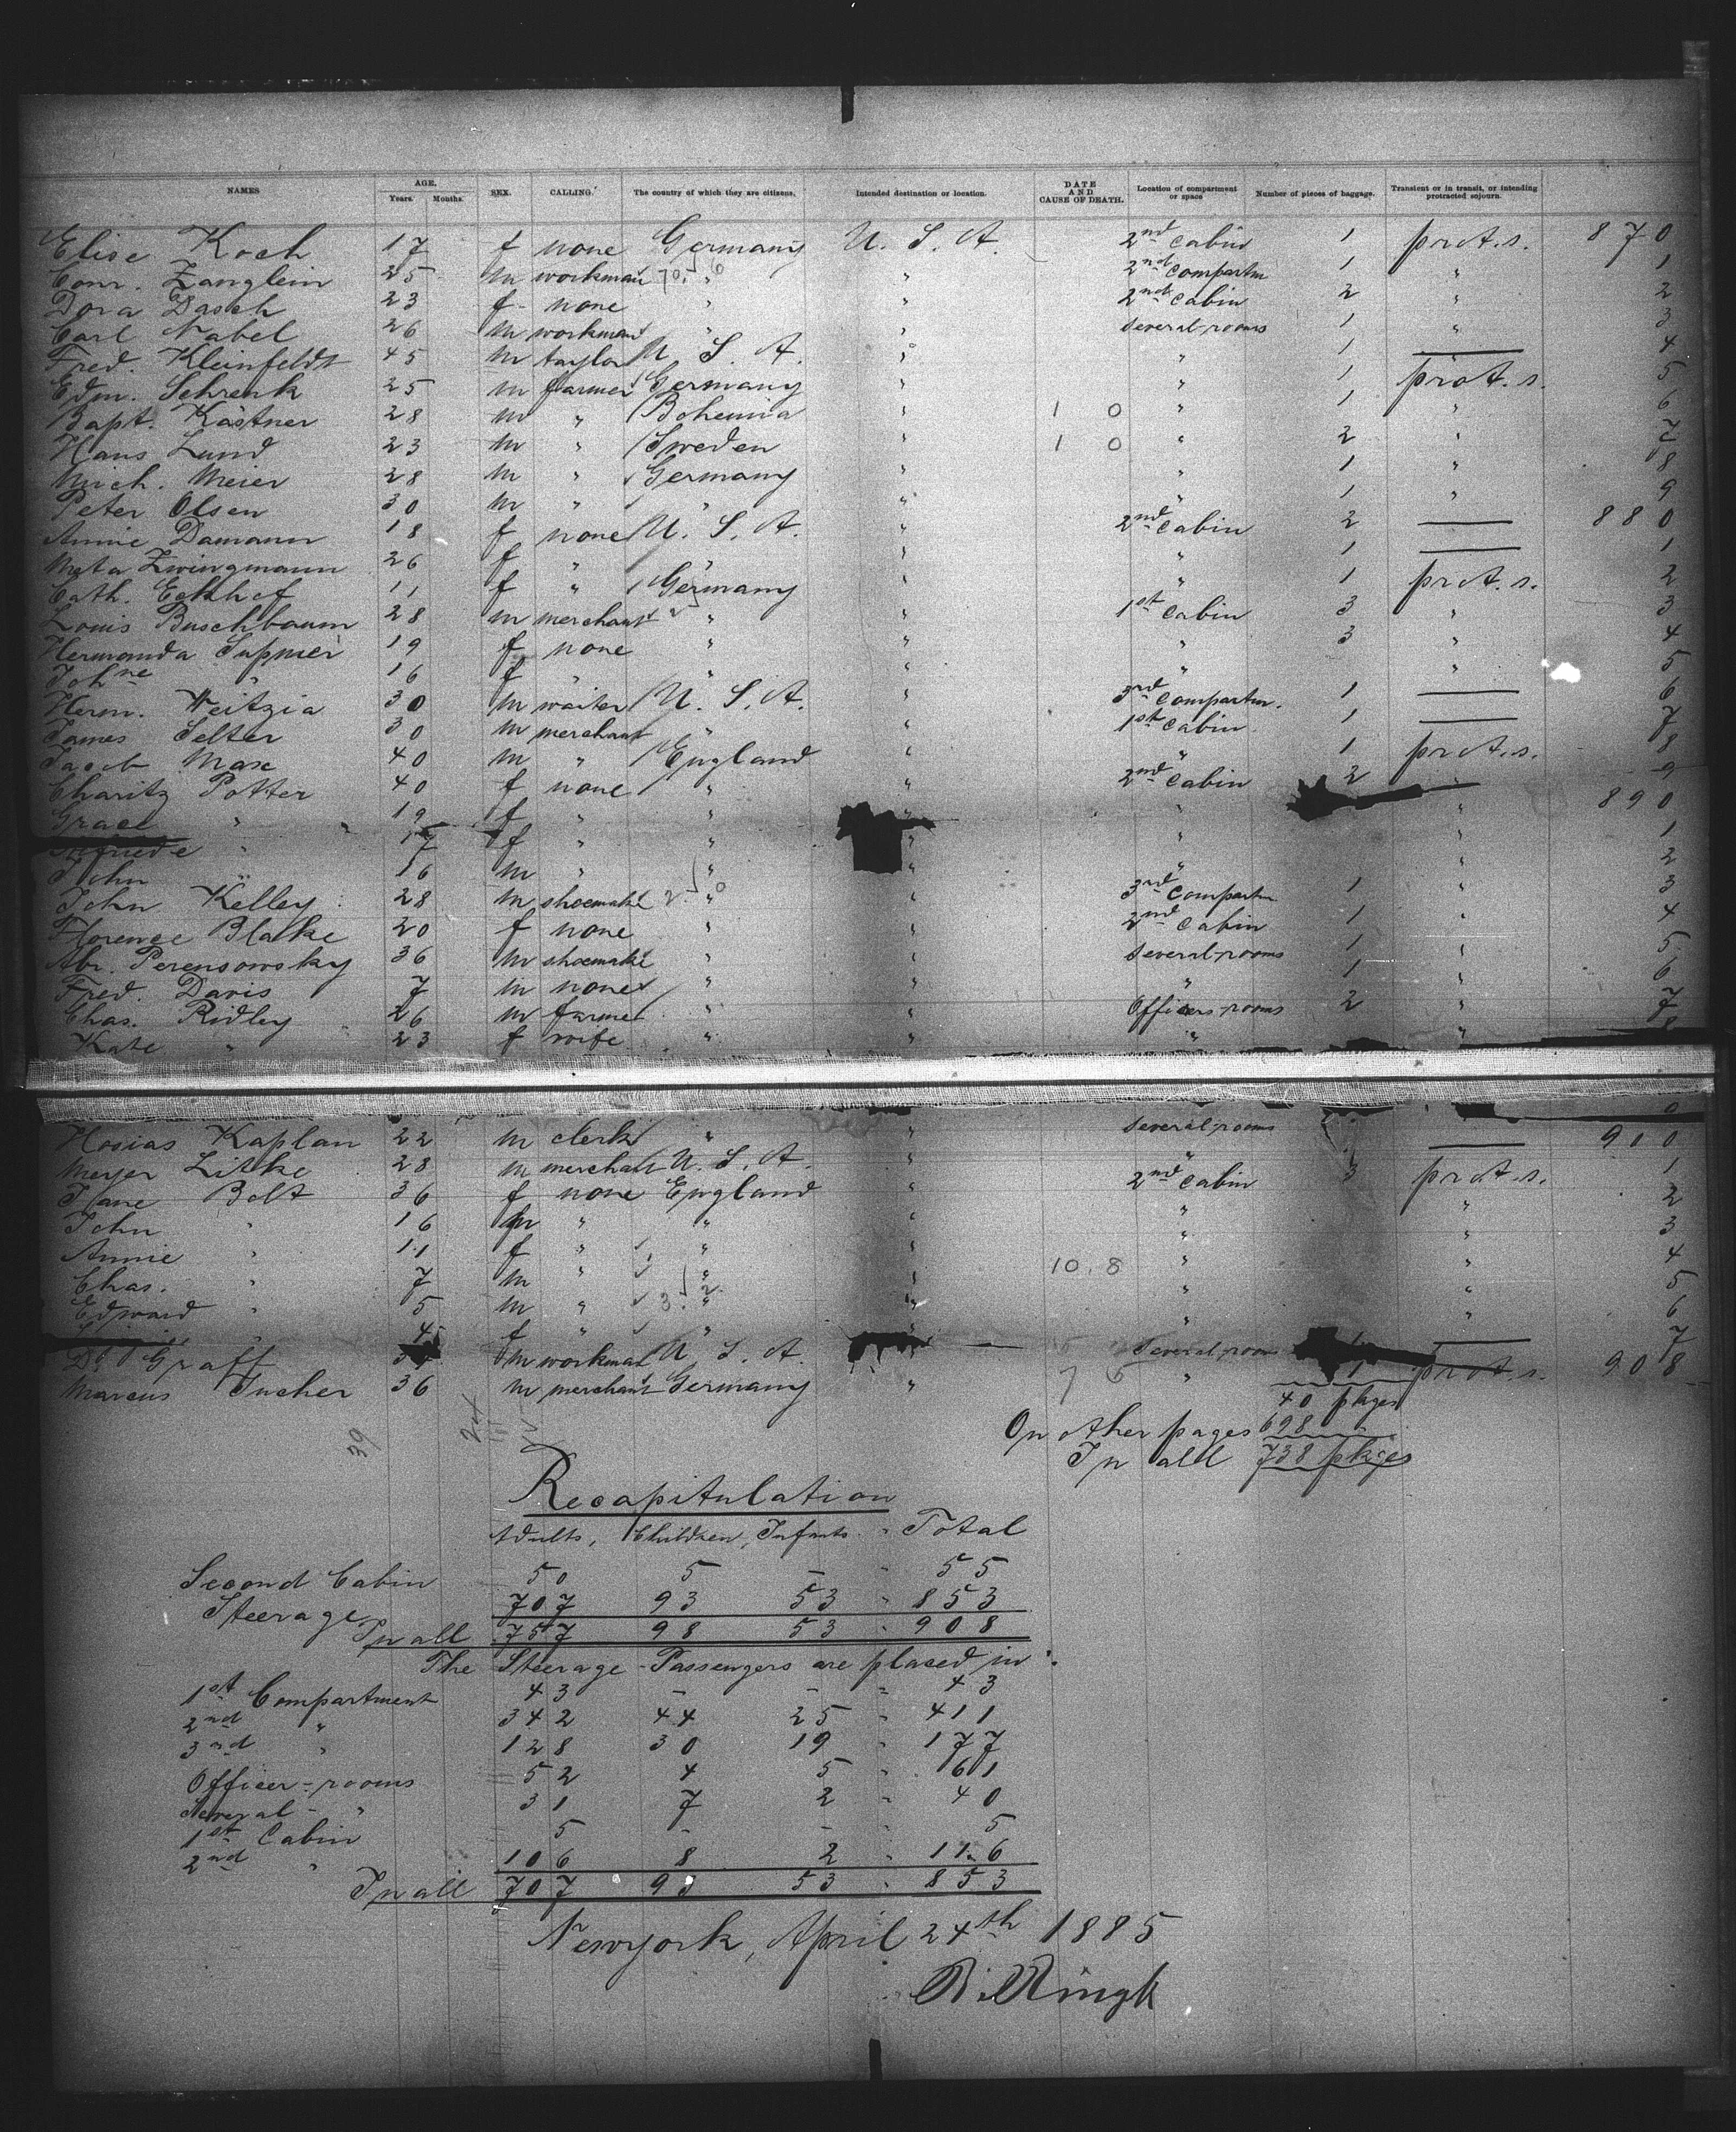 NAMES AGE. Years. Months. SEX. CALLING. The country of which they are citizens. Intended destination or location. DATE AND CAUSE OF DEATH. Location of compartment or space Number of pieces of baggage. Transient or in transit, or intending protracted sojourn.
Elise Koch 17 f none Germany U. S. A. 2nd Cabin 1 prot. s. 870
Conr. Zanglein 25 m workman " " 2nd Compartm 1 " 1
Dora Dasch 23 f none " " 2nd Cabin 2 " 2
Carl Nabel 26 m workman " " Several-rooms 1 " 3
Fred. Kleinfeldt 45 m taylor U. S. A. " " 1 — 4
Edm. Schrenk 25 m farmer Germany " " 1 prot. s. 5
Bapt. Kästner 28 m " Bohemia " 1 0 " 1 " 6
Hans Lund 23 m " Sweden " 1 0 " 2 " 7
Mich. Meier 28 m " Germany " " 1 " 8
Peter Olsen 30 m " " " " 1 " 9
Annie Damann 18 f none U. S. A. " 2nd Cabin 2 — 880
Meta Zwingmann 26 f " " " " 1 — 1
Cath. Eckhof 11 f " Germany " " 1 prot. s. 2
Louis Buschbaum 28 m merchant " " 1st Cabin 3 " 3
Hermanda 19 f none " " " 3 " 4
Johne " 16 f " " " " " 5
Herm. 30 m waiter U. S. A. " 3rd Compartm. 1 — 6
James Selter 30 m merchant " " 1st Cabin 1 — 7
Jacob Marx 40 m " England " " 1 prot. s. 8
Charity Potter 40 f none " " 2nd Cabin 2 " 9
Grace " 19 f " " " " " 890
" 17 f " " " " " 1
John " 16 m " " " " " 2
John Kelley 28 m shoemake " " 3rd Compartm 1 " 3
Florence Blake 20 f none " " 2nd Cabin 1 " 4
Abr. Perensowsky 36 m shoemake " " Several-rooms 1 " 5
Fred. Davis 7 m none " " " 1 " 6
Chas. Ridley 26 m farmer " " Officers-rooms 2 " 7
Kate " 23 f wife " " " " 8
Hosias Kaplan 22 m clerk " " Several-rooms
Meyer Litke 28 m merchant U. S. A. " " — 900
Jane Bolt 36 f none England " 2nd Cabin 3 prot. s. 1
John " 16 m " " " " " 2
Annie " 11 f " " " " " 3
Chas. " 7 m " " " 10. 8 " " 4
Edward " 5 m " " " " " 5
" 4 f " " " " " 6
Graff m workman U. S. A. Several-room 1 — 7
Marcus Tucher 36 m merchant Germany " 7 6 " 1 prot. s. 908
40 pkges
On other pages 698 "
In all 738 pkges
39
Recapitulation
Adults, Children, Infants. " Total
Second Cabin 50 5 – " 55
Steerage 707 93 53 " 853
In all 757 98 53 " 908
The Steerage-Passengers are placed in:
1st Compartment 43 – – " 43
2nd " 342 44 25 " 411
3rd " 128 30 19 " 177
Officer-rooms 52 4 5 " 61
Several- " 31 7 2 " 40
1st Cabin 5 – – " 5
2nd " 106 8 2 " 116
In all 707 93 53 " 853
Newyork, April 24th 1885